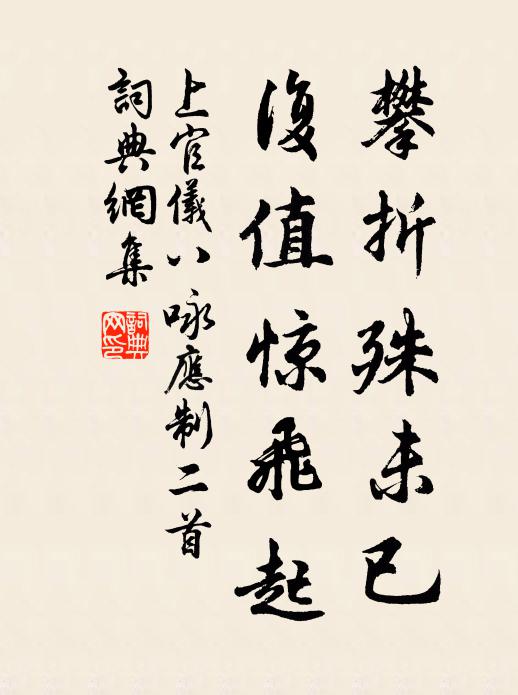 攀折殊未已
復值惊飛起
上官儀八咏應制二首
詞典網集
詞典
网印